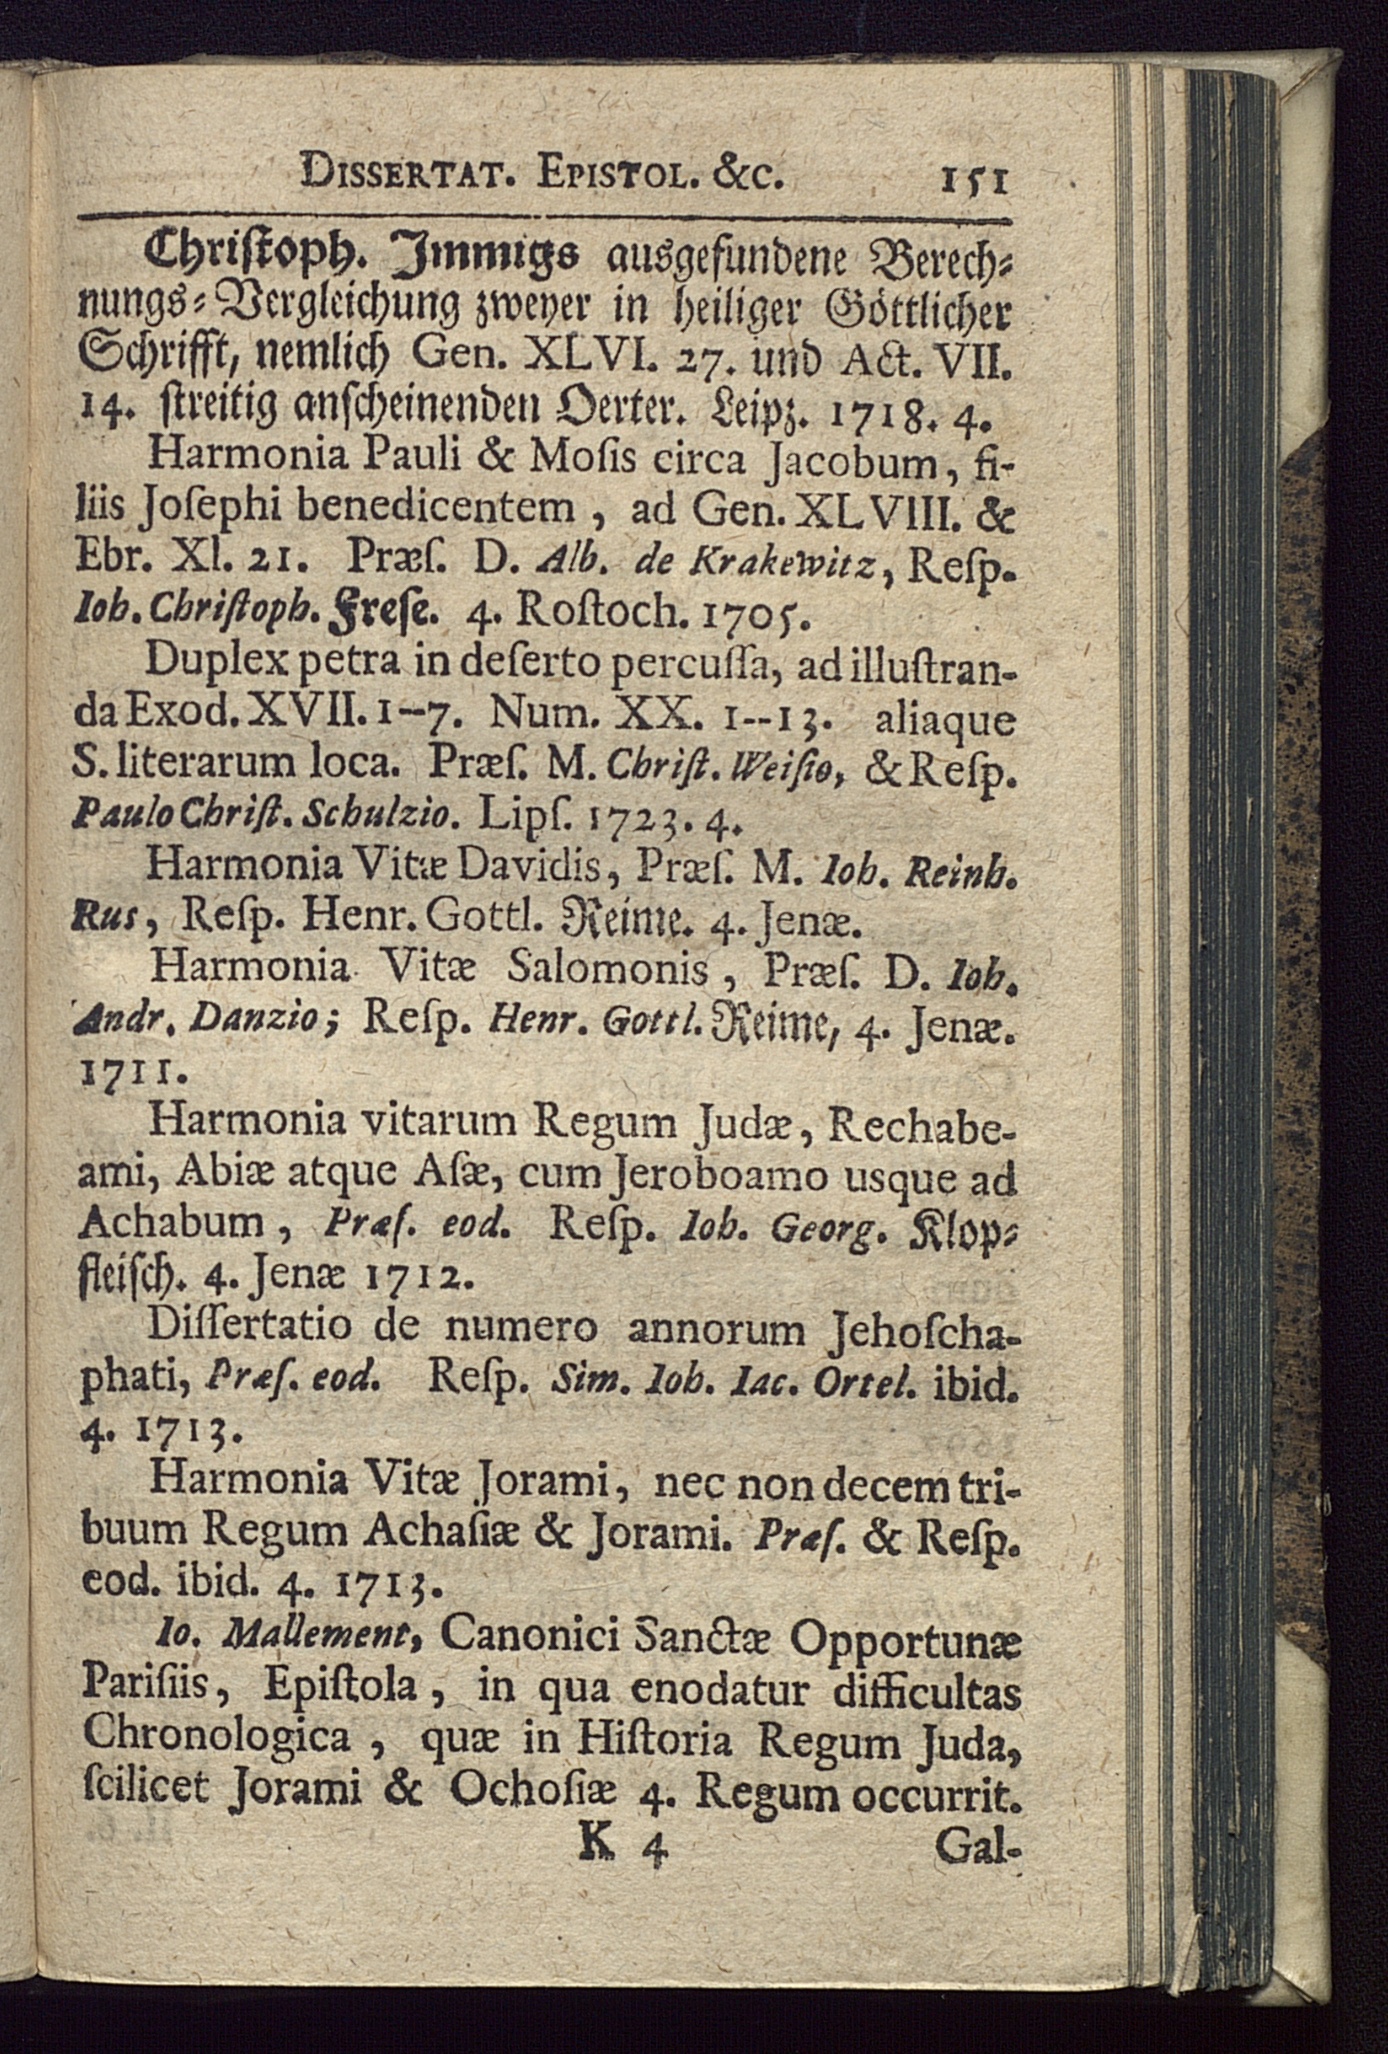 DISSERTAT. EPISTOL. &c. 151
Chriſtoph. Immigs ausgefundene Berech⸗
nungs⸗Vergleichung zweyer in heiliger Göttlicher
Schrifft, nemlich Gen. XLVI. 27. und Act. VII.
14. ſtreitig anſcheinenden Oerter. Leipz. 1718. 4.
Harmonia Pauli & Moſis circa Jacobum, fi-
liis Joſephi benedicentem, ad Gen. XLVIII. &
Ebr. XI. 21. Præſ. D. Alb. de Krakewitz, Reſp.
Ioh. Chriſtoph. Freſe. 4. Roſtoch. 1705.
Duplex petra in deſerto percuſſa, ad illuſtran-
da Exod. XVII. 1--7. Num. XX. 1--13. aliaque
S. literarum loca. Præſ. M. Chriſt. Weiſio, & Reſp.
Paulo Chriſt. Schulzio. Lipſ. 1723. 4.
Harmonia Vitæ Davidis, Præſ. M. Ioh. Reinh.
Rus, Reſp. Henr. Gottl. Reime. 4. Jenæ.
Harmonia Vitæ Salomonis, Præſ. D. Ioh.
Andr. Danzio; Reſp. Henr. Gottl. Reime, 4. Jenæ.
1711.
Harmonia vitarum Regum Judæ, Rechabe-
ami, Abiæ atque Aſæ, cum Jeroboamo usque ad
Achabum, Præſ. eod. Reſp. Ioh. Georg. Klop⸗
fleiſch. 4. Jenæ 1712.
Diſſertatio de numero annorum Jehoſcha-
phati, Præſ. eod. Reſp. Sim. Ioh. Iac. Ortel. ibid.
4. 1713.
Harmonia Vitæ Jorami, nec non decem tri-
buum Regum Achaſiæ & Jorami. Præſ. & Reſp.
eod. ibid. 4. 1713.
Io. Mallement, Canonici Sanctæ Opportunæ
Pariſiis, Epiſtola, in qua enodatur difficultas
Chronologica, quæ in Hiſtoria Regum Juda,
ſcilicet Jorami & Ochoſiæ 4. Regum occurrit.
K 4 Gal-